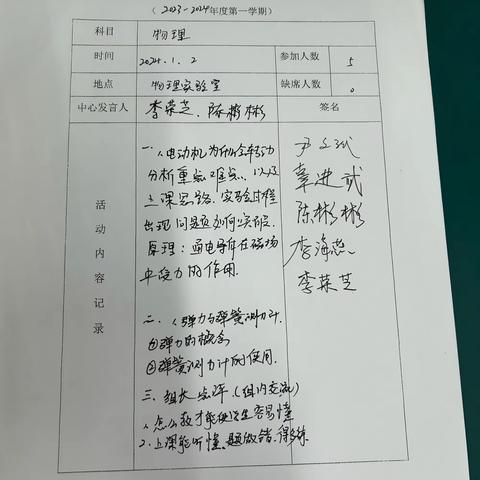 （ 2023-2024年度第一学期）
科目 物理
时间 2024.1.2 参加人数 5
地点 物理实验室 缺席人数 0
中心发言人 李荣芝、陈彬彬 签名
活动内容记录
一、《电动机为什么会转动
分析重点难点、以及
上课思路、实验过程
出现问题如何
原理：通电导体在磁场
中受力的作用.
二、《弹力与弹簧测力计.
①弹力的概念
②弹簧测力计的使用.
三、组长点评（组内交流）
1、怎么教才能使学生容易懂
2、上课能听懂、题做错、得多练.
章进武
陈彬彬
李海燕
李荣芝